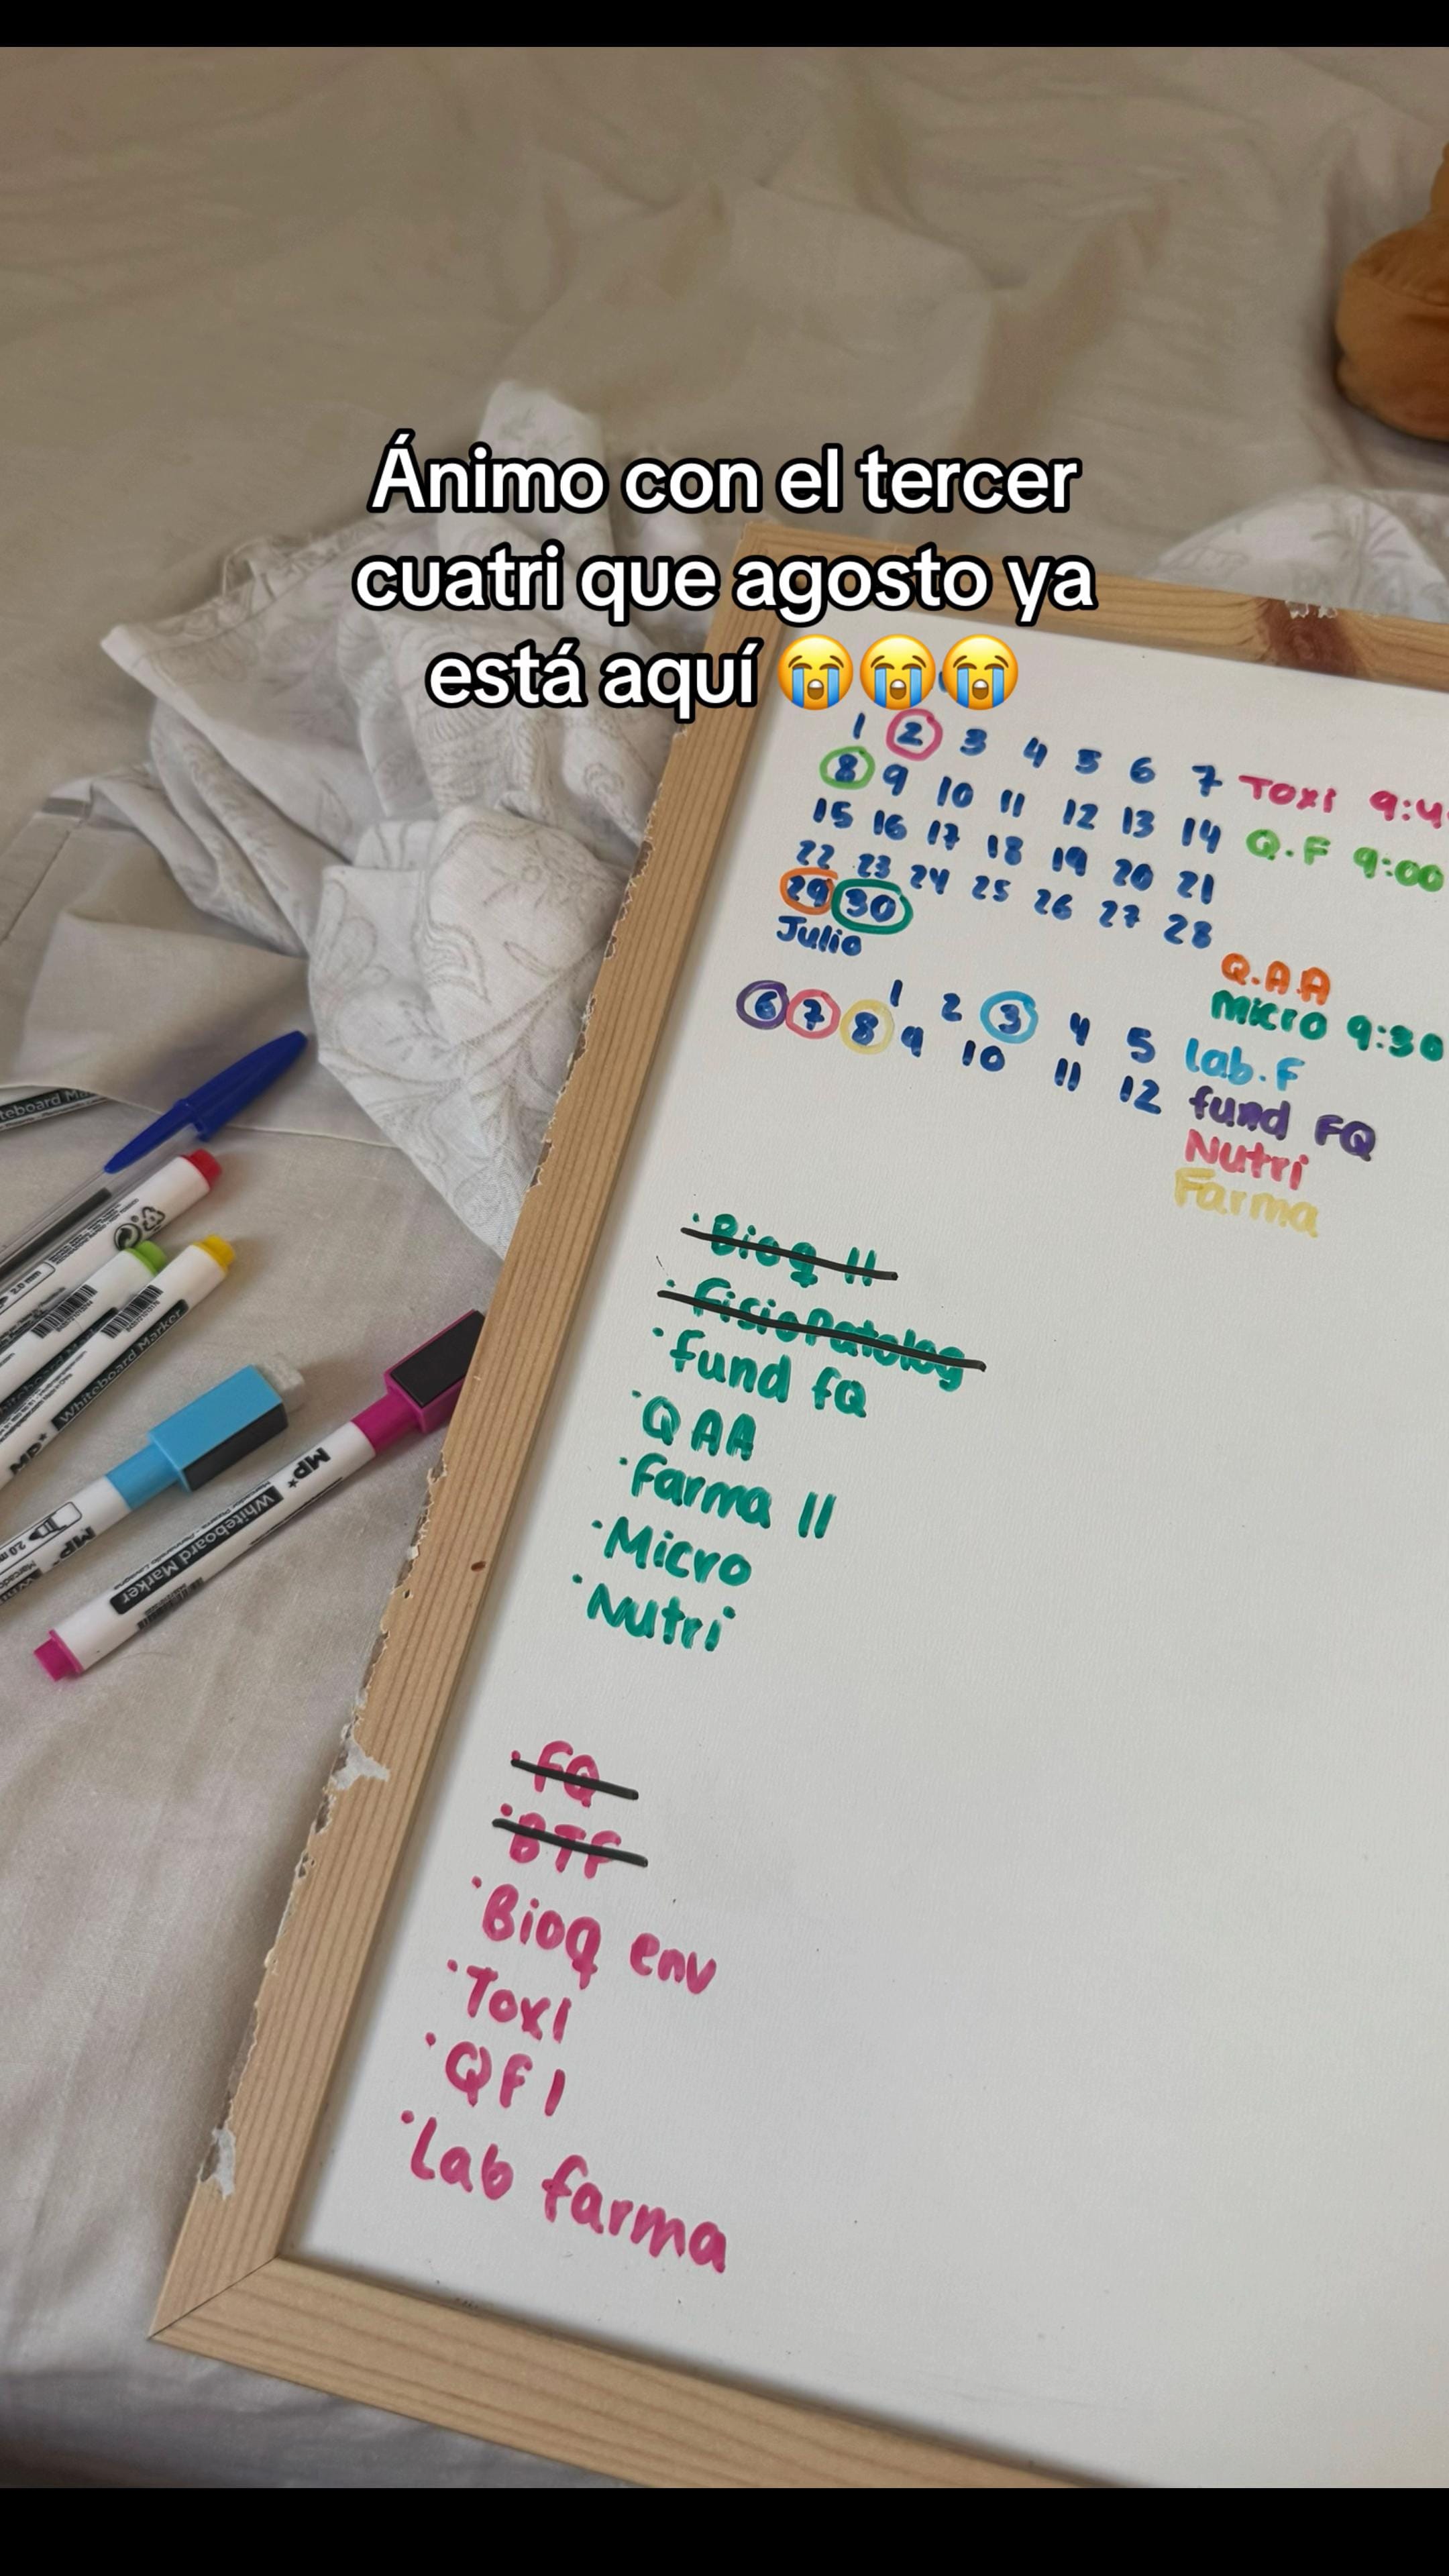 Ánimo con el tercer
cuatri que agosto ya
está aquí 😭😭😭
1 2 3 4 5 6 7 Toxi 9:4
8 9 10 11 12 13 14 Q.F 9:00
15 16 17 18 19 20 21
22 23 24 25 26 27 28
29 30
Q.A.A
Julio
Micro 9:30
1 2 3 4 5 Lab.F
6 7 8 9 10 11 12 fund FQ
Nutri
Farma
· Bioq II
· FisioPatolog
· fund fQ
· QAA
· Farma II
· Micro
· Nutri
· FQ
· BTF
· Bioq env
· Toxi
· QF I
· Lab farma
teboard Ma
2.0 mm
MP*
Whiteboard Marker
2.0 m
MP*
Marcado
MP*
Whiteboard Marker
Whiteboard
Marker